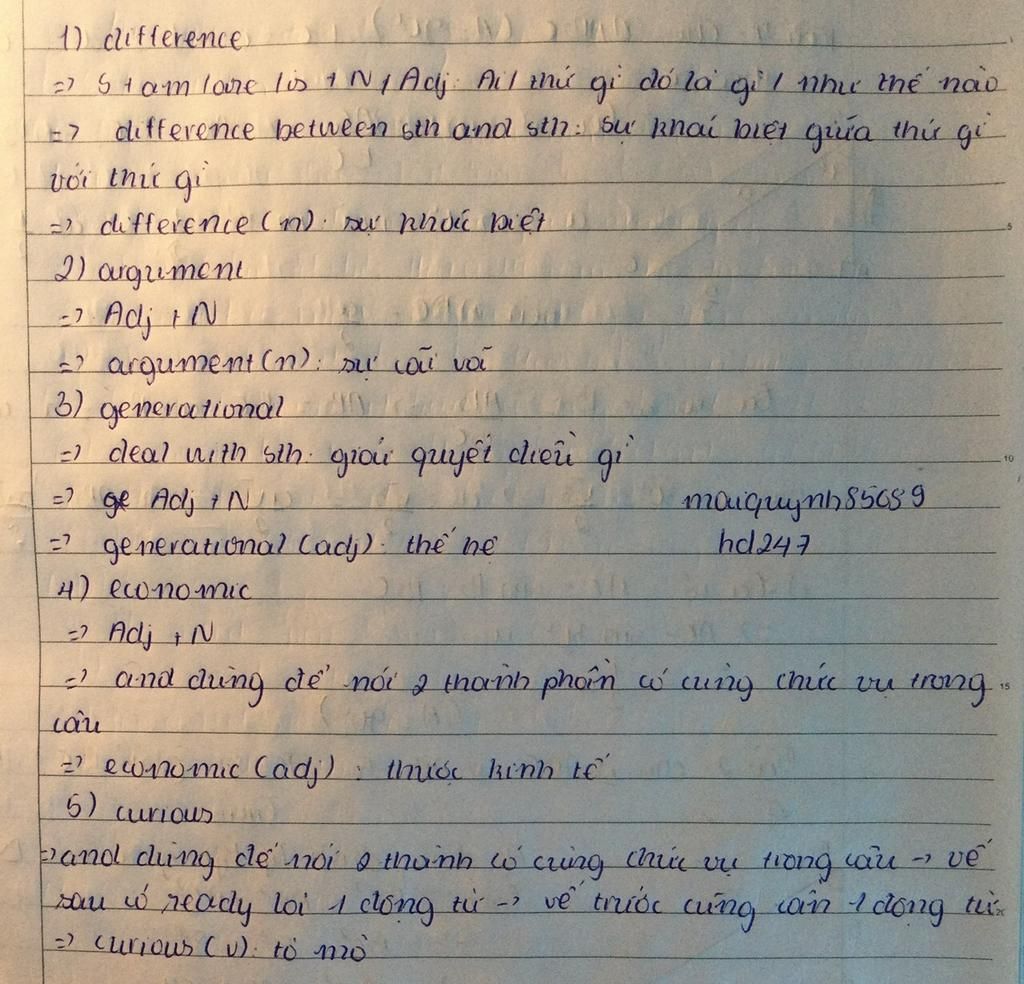 1) difference
=> S + am/are/is + N/Adj: Ai/thứ gì đó là gì/như thế nào
=> difference between sth and sth: sự khái biệt giữa thứ gì
với thứ gì
=> difference (n): sự khác biệt
2) argument
=> Adj + N
=> argument (n): sự cãi vã
3) generational
=> deal with sth: giải quyết điều gì
=> ge Adj + N
maiquynh85689
=> generational (adj): thế hệ
hd247
4) economic
=> Adj + N
=> and dùng để nói 2 thành phần có cùng chức vụ trong
câu
=> economic (adj): thuộc kinh tế
5) curious
=> and dùng để nói 2 thành có cùng chức vụ trong câu -> vế
sau có ready lòi 1 động từ -> vế trước cũng cần 1 động từ
=> curious (v): tò mò